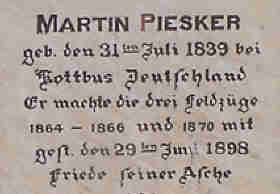 MARTIN PIESKER
geb. den 31ten Juli 1839 bei
Kottbus Deutschland
Er machte die drei Feldzüge
1864 – 1866 und 1870 mit
gest. den 29ten Juni 1898
Friede seiner Asche